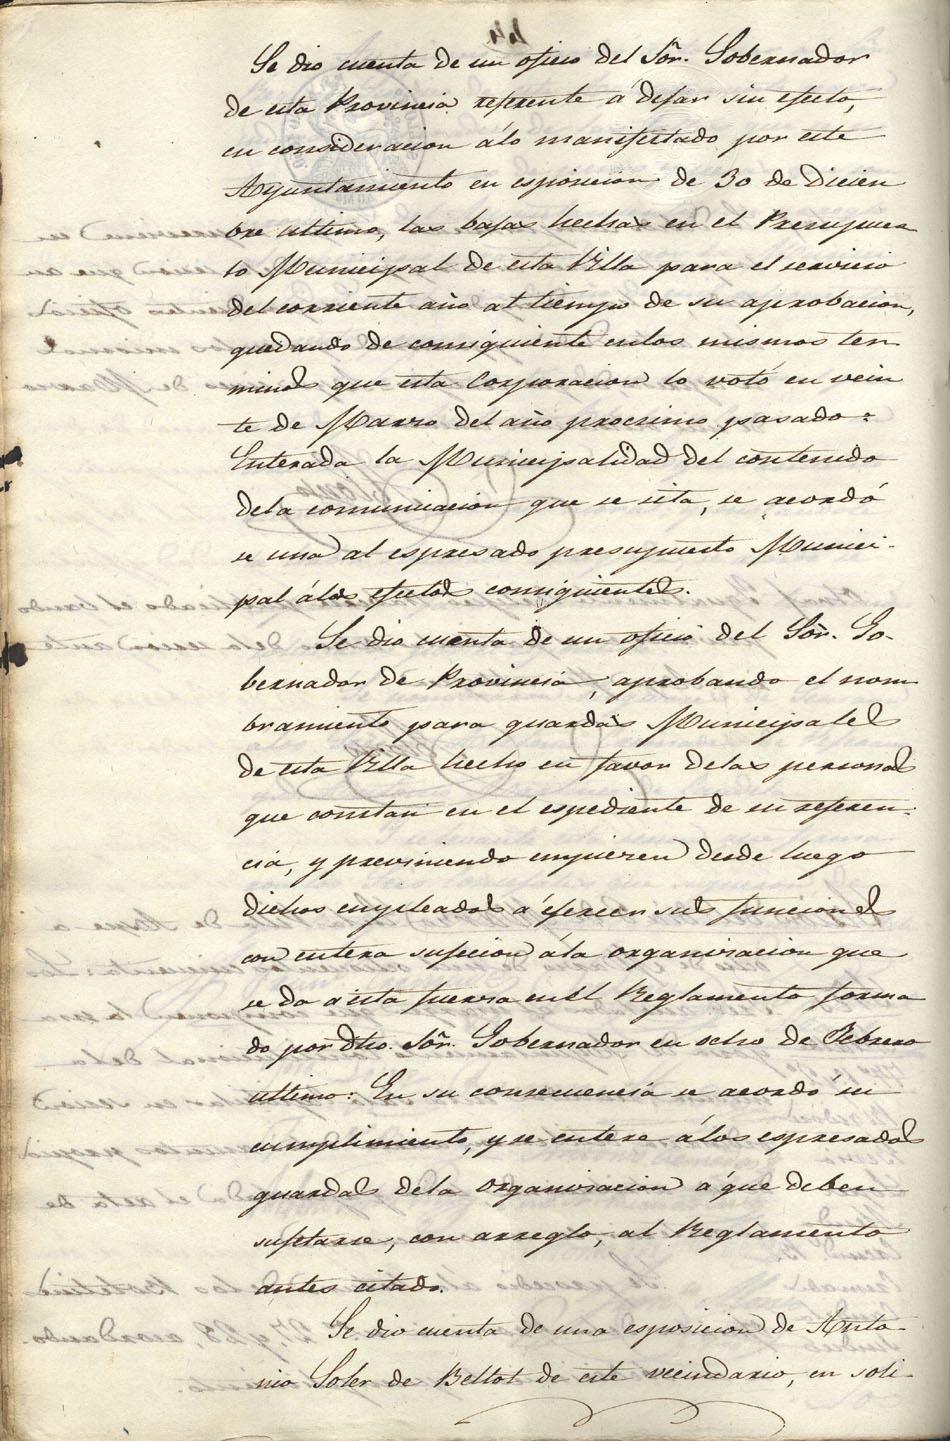 Se dio cuenta de un oficio del Sôr. Gobernador
de esta Provincia referente a dejar sin efecto,
en consideracion álo manifestado por este
Ayuntamiento en esposicion de 30 de Diciem
bre ultimo, las bajas hechas en el Presupues
to Municipal de esta Villa para el servicio
del corriente año al tiempo de su aprobacion,
quedando de consiguiente enlos mismos ter
minos que esta Corporacion lo votó en vein
te de Marzo del año procsimo pasado:
Enterada la Municipalidad del contenido
dela comunicacion que se cita, se acordó
se una al espresado presupuesto Munici-
pal álos efectos consiguientes.
Se dio cuenta de un oficio del Sôr. Go-
bernador de Provincia, aprobando el nom
bramiento para guardas Municipales
de esta Villa hecho en favor delas personas
que constan en el espediente de su referen-
cia, y previniendo empiezen desde luego
dichos empleados á ejercer sus funciones
con entera sujecion ála organizacion que
se da a esta fuerza en el Reglamento forma
do por dho. Sôr. Gobernador en ocho de Febrero
ultimo: En su consecuencia se acordó su
cumplimiento, y se entere álos espresados
guardas dela organizacion á que deben
sujetarse, con arreglo, al Reglamento
antes citado.
Se dio cuenta de una esposicion de Anto
nio Soler de Beltot de este vecindario, en soli-